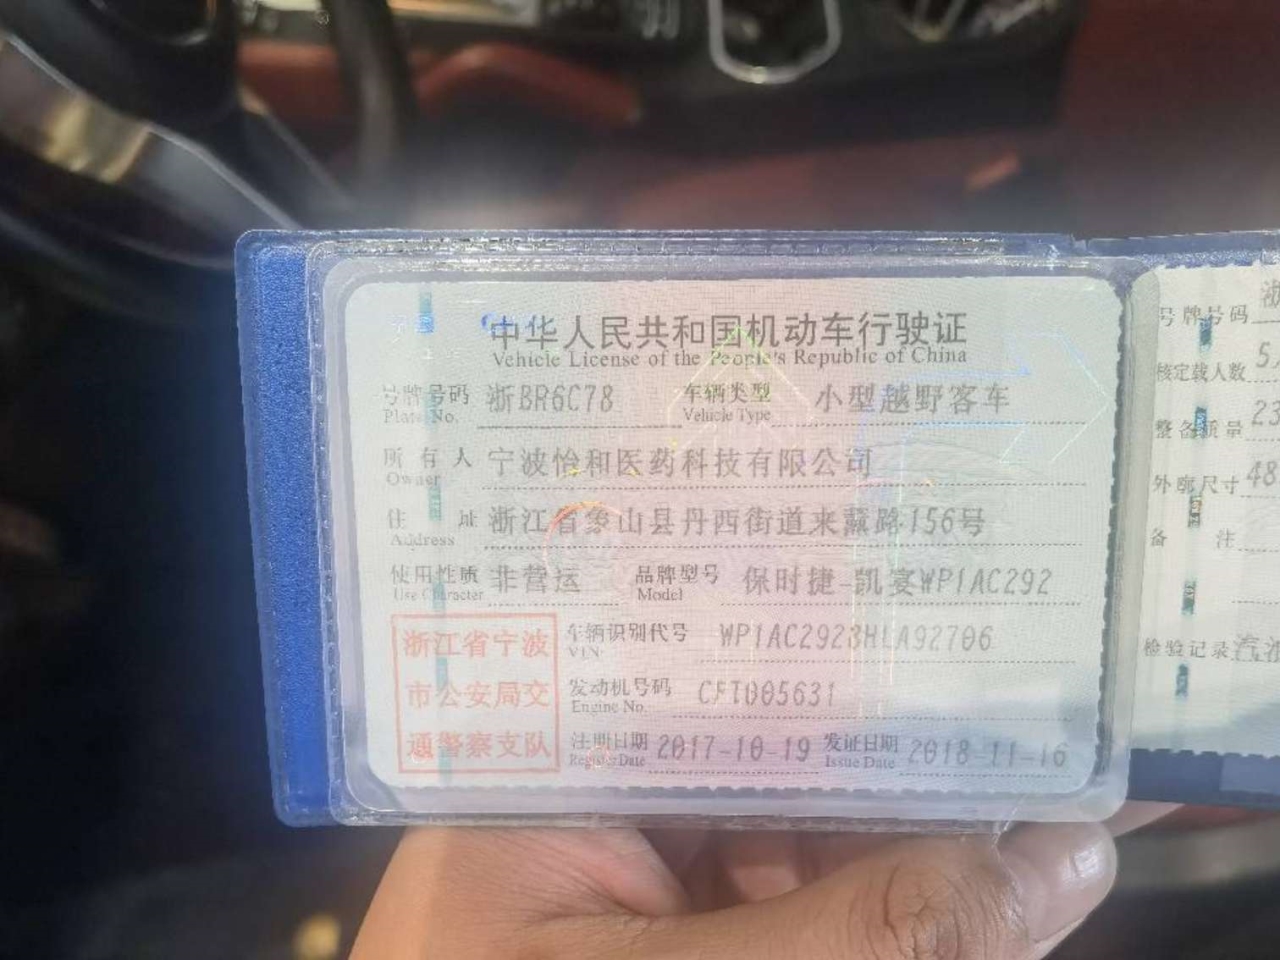 中华人民共和国机动车行驶证
Vehicle License of the People's Republic of China
号牌号码 浙BR6C78 车辆类型 小型越野客车
Plate No. Vehicle Type
所有人 宁波怡和医药科技有限公司
Owner
住址 浙江省象山县丹西街道来薰路156号
Address
使用性质 非营运 品牌型号 保时捷-凯宴WP1AC292
Use Character Model
浙江省宁波
市公安局交
通警察支队
车辆识别代号 WP1AC2923HLA92706
VIN
发动机号码
Engine No.
注册日期 2017-10-19 发证日期 2018-11-16
Register Date Issue Date
号牌号码 浙
核定载人数 5
整备质量 23
外廓尺寸 48
备注
检验记录